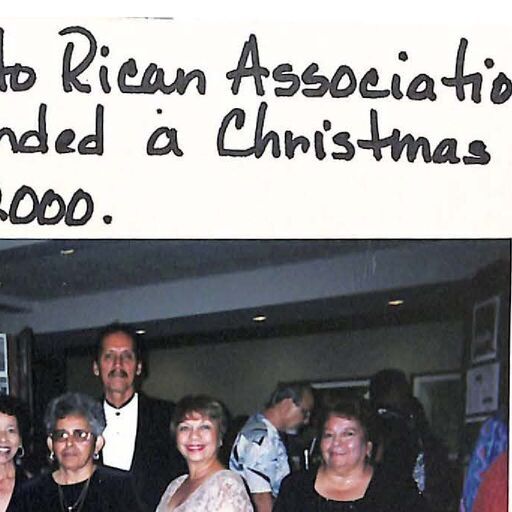 to Rican Associatio
nded a Christmas
2000.